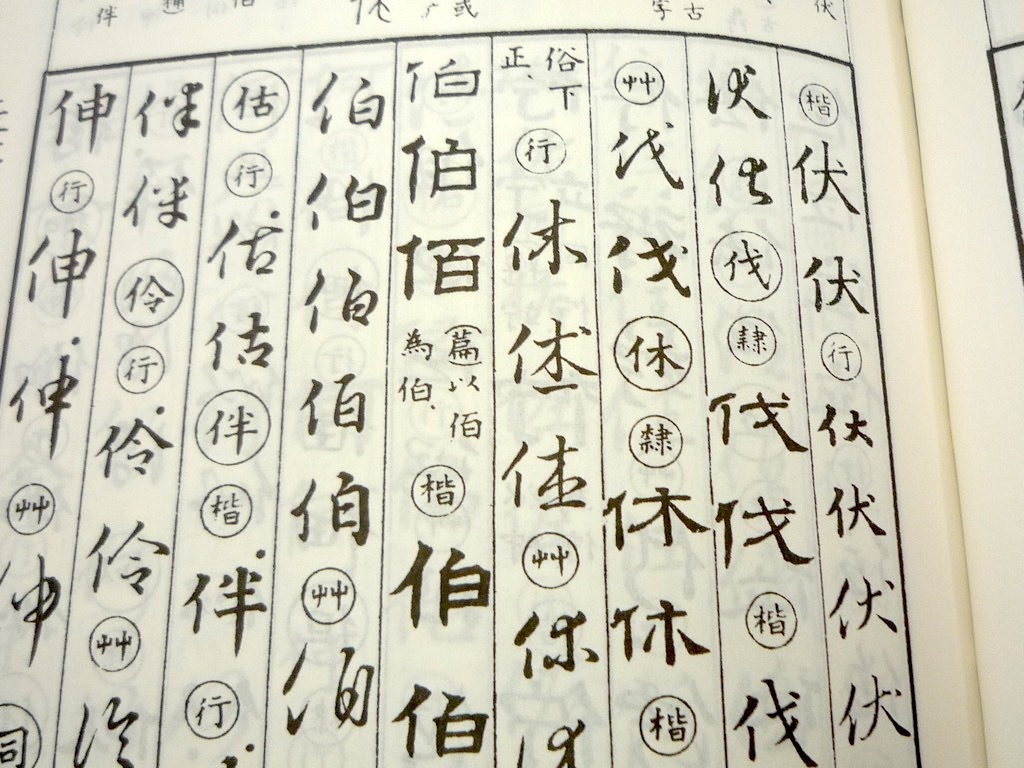 楷伏伏行伏伏伏伏
伏伏伐隷伐伐楷伐
艸伐伐休隷休休楷
俗下
正、行休休佳艸休
伯伯佰
篇以伯
為伯、楷伯伯
伯伯伯伯伯艸伯
估行估估伴楷伴行
伴伴伶行伶伶艸伶
伸行伸伸艸申
伺